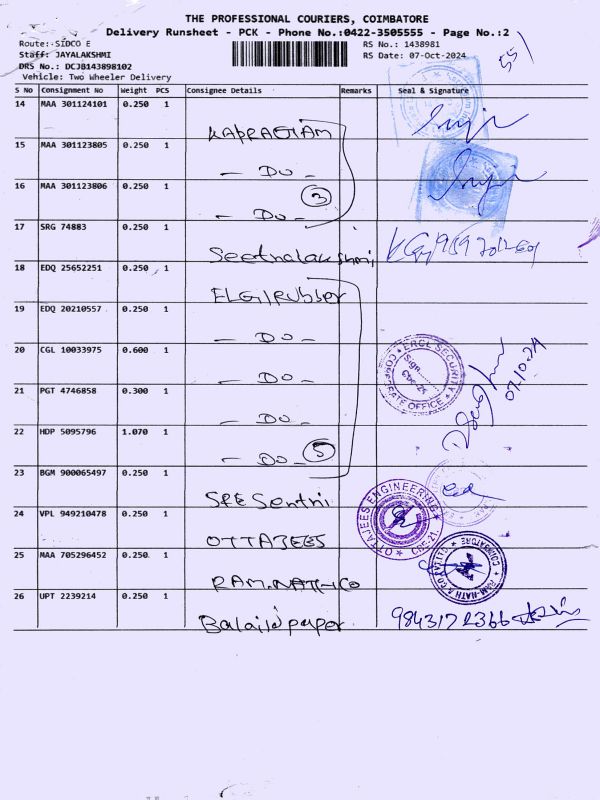 THE PROFESSIONAL COURIERS, COIMBATORE
Delivery Runsheet - PCK - Phone No.:0422-3505555 - Page No.:2
Route: SIDCO E
Staff: JAYALAKSHMI
DRS No.: DCJB143898102
Vehicle: Two Wheeler Delivery
RS No.: 1438981
RS Date: 07-Oct-2024
551
S No Consignment No Weight PCS Consignee Details Remarks Seal & Signature
14 MAA 301124101 0.250 1
15 MAA 301123805 0.250 1 - Do -
16 MAA 301123806 0.250 1 - Do - 3
17 SRG 74883 0.250 1 Seethalakshmi
18 EDQ 25652251 0.250 1 ELGI Rubber
19 EDQ 20210557 0.250 1 - Do -
20 CGL 10033975 0.600 1 - Do -
21 PGT 4746858 0.300 1 - Do -
22 HDP 5095796 1.070 1 - Do - 5
ERGL SECURITY
CORPORATE OFFICE
Sign
CBE-21
07.10.24
23 BGM 900065497 0.250 1
24 VPL 949210478 0.250 1 OTTAJEES
OTTAJEES ENGINEERING
CBE-21.
25 MAA 705296452 0.250 1 RAM.NATH CO
RAM-NATH & CO
COIMBATORE
26 UPT 2239214 0.250 1 Balaji paper